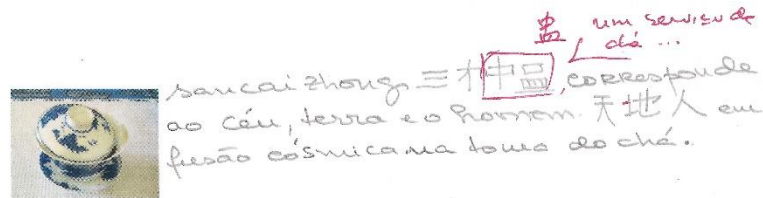 盅 um serviço de
chá ...
sancai zhong 三才中皿, corresponde
ao céu, terra e o homem. 天地人 em
fusão cósmica na toma do chá.